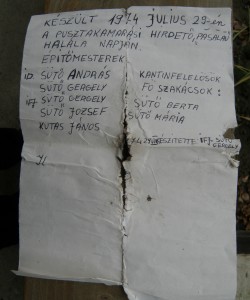 KÉSZÜLT 1974 JÚLIUS 29-én
A PUSZTAKAMARÁSI HIRDETŐ, PASALAU
HALÁLA NAPJÁN
ÉPITŐMESTEREK
ID SÜTŐ ANDRÁS
SÜTŐ GERGELY
IFJ SÜTŐ GERGELY
SÜTŐ JÓZSEF
KUTAS JÁNOS
KANTINFELELŐSÖK
FŐ SZAKÁCSOK:
SÜTŐ BERTA
SÜTŐ MÁRIA
KÉSZITETTE IFJ. SÜTŐ
GERGELY